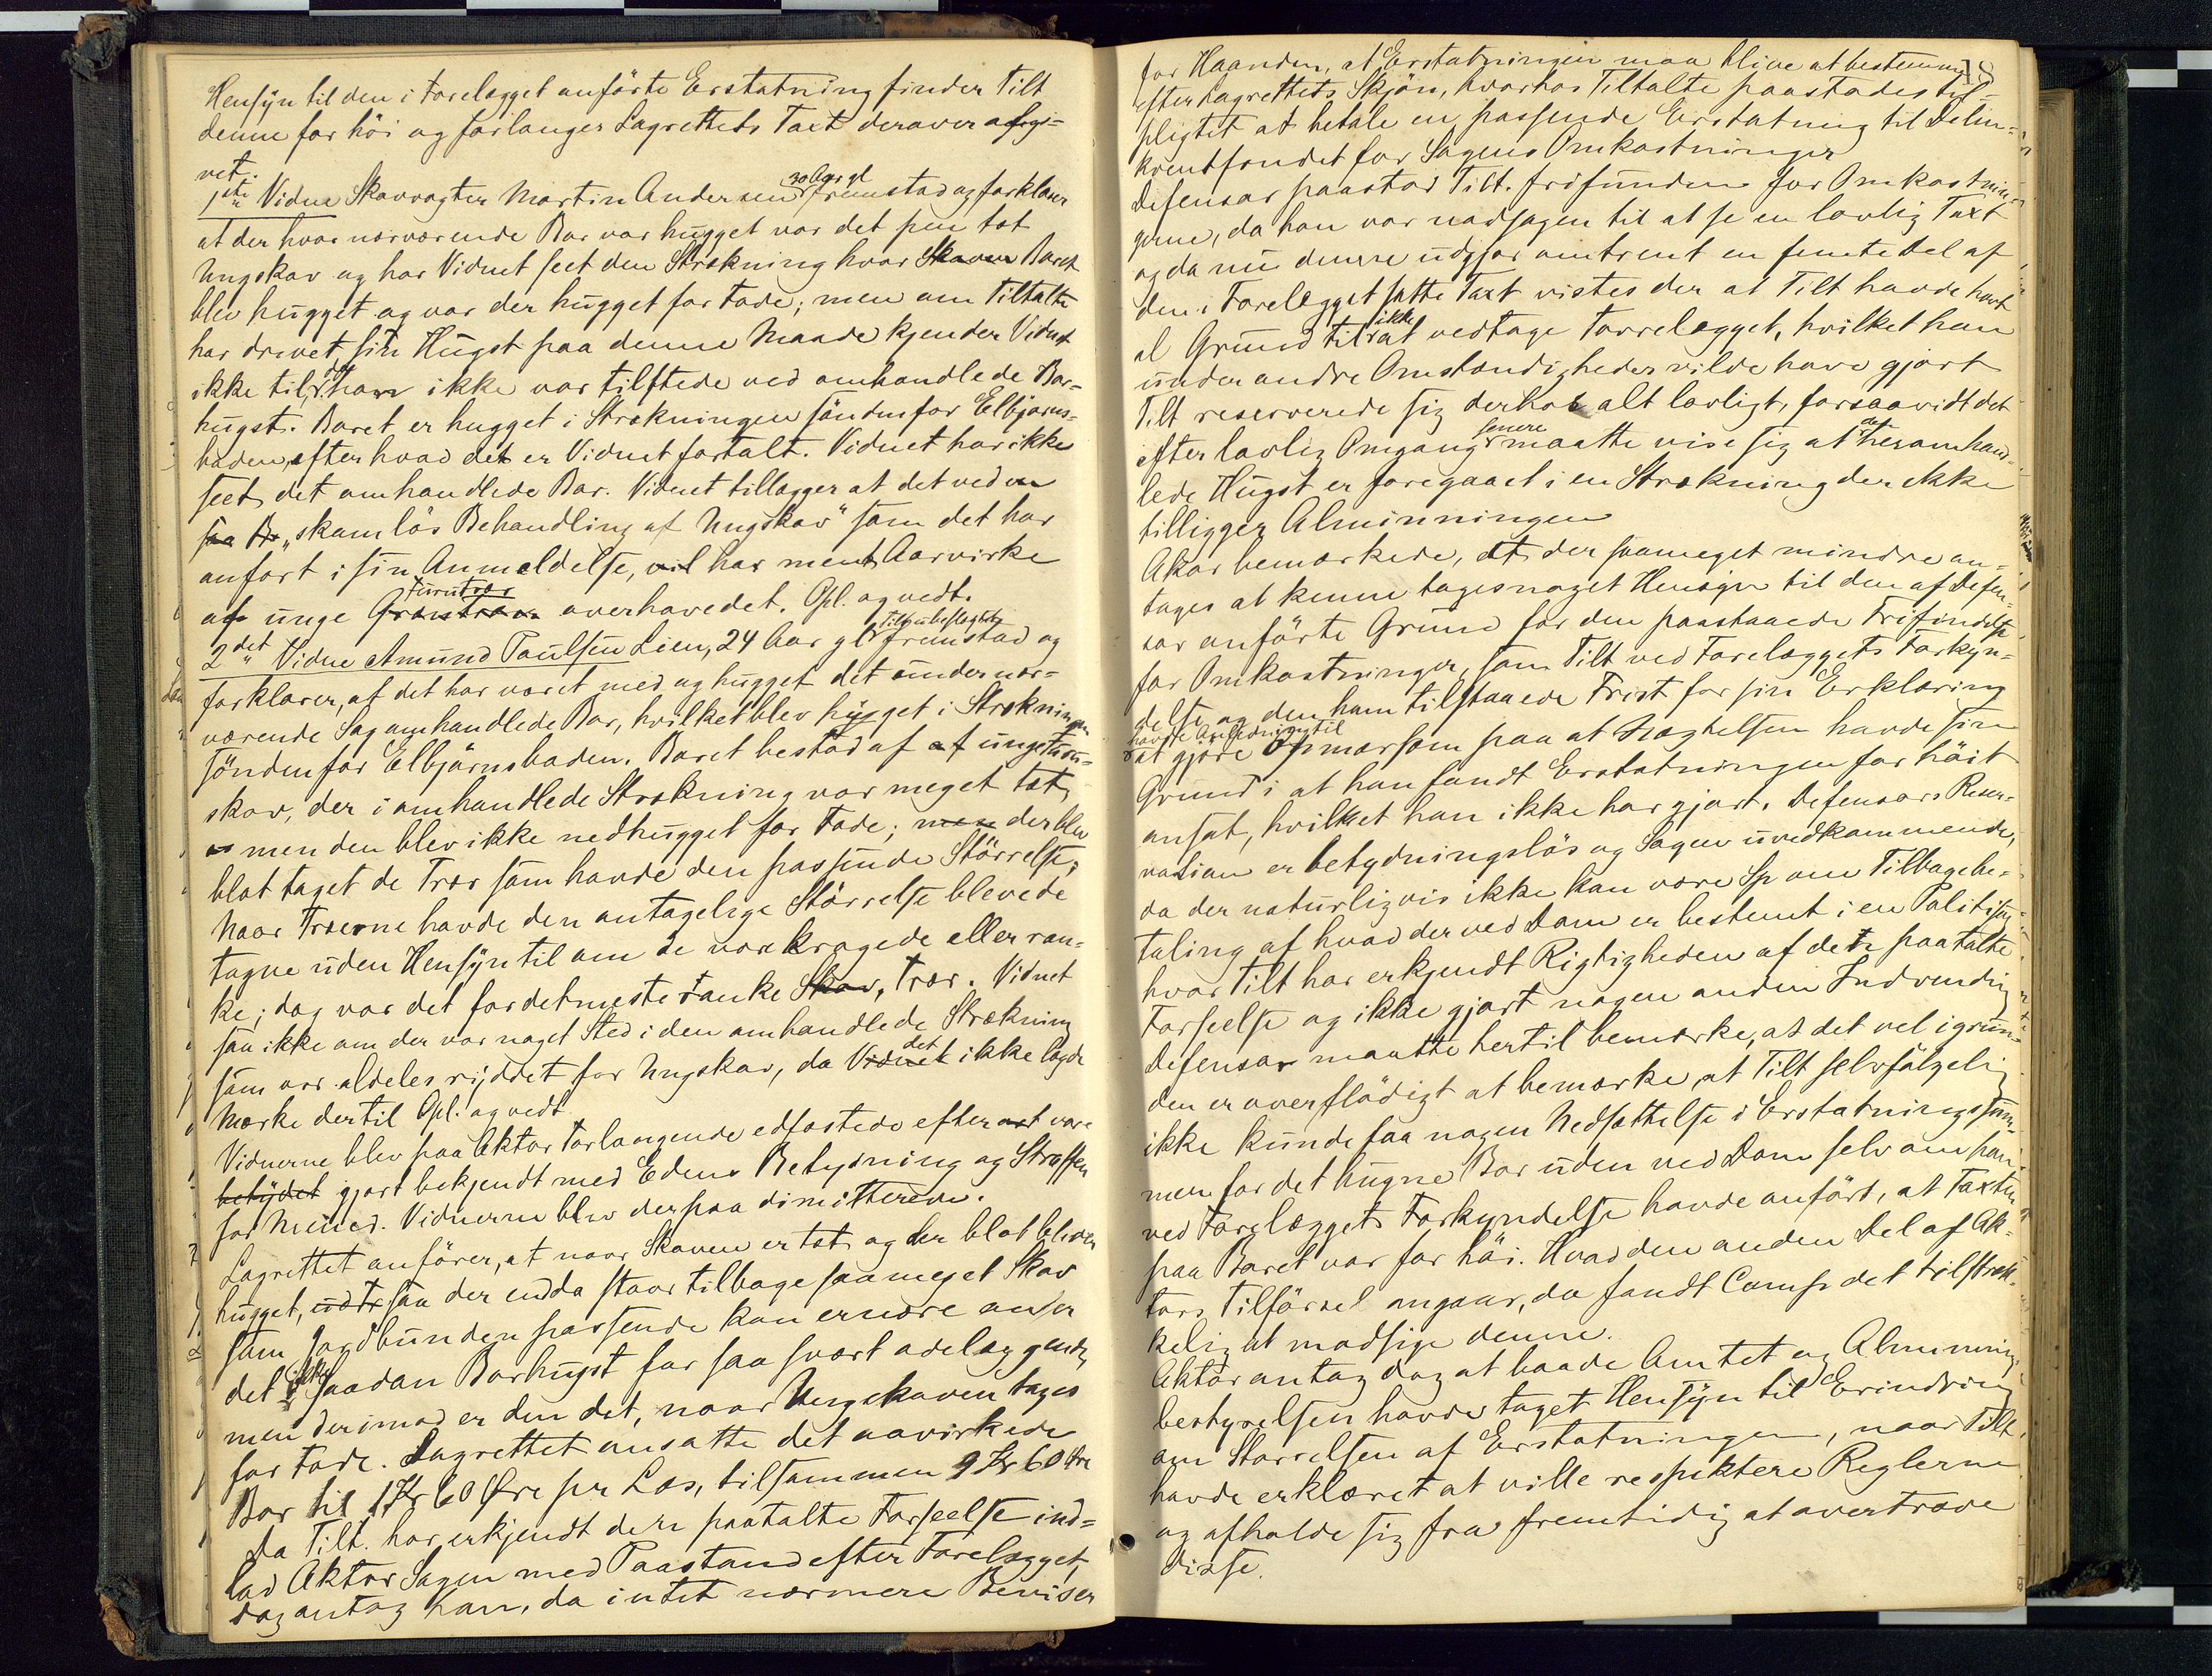 Hensyn til den i Forelægget anførte Erstatning finder Tilt
denne for høi og forlanger Lagrettets Taxt derover afgi=
vet.
1ste Vidne Skovvogter Martin Andersen 30 Aar gl fremstod og forklarer
at der hvor nærværende Bar var hugget var det pen tæt
Ungskov og har Vidnet seet den Strækning hvor Skoven Baret
blev hugget og var der hugget for Fode; men om Tiltalte
har drevet sin Hugst paa denne Maade kjender Vidnet
ikke til, da han ikke var tilstede ved omhandlede Bar=
hugst. Baret er hugget i Strækningen sønden for Elbjørns=
baden, efter hvad det er Vidnet fortalt. Vidnet har ikke
seet det omhandlede Bar. Vidnet tillægger at det ved en
saa Be "skamløs Behandling af Ungskov" som det har
anført i sin Anmeldelse, vil har ment Aarvirke
af unge Grantræer Furutrær overhovedet. Opl. og vedt.
2det Vidne Amund Paulsen Lien, 24 Aar gl Tilt. ubeslægtet fremstod og
forklarer, at det har været med og hugget det under nær=
værende Sag omhandlede Bar, hvilket blev hugget i Strækningen
sønden for Elbjørnsbaden. Baret bestod af af ungfuru=
skov, der i omhandlede Strækning var meget tæt,
men den blev ikke nedhugget for Fode; men der blev
blot taget de Trær som havde den passende Størrelse,
Naar Trærne havde den antagelige Størrelse bleve de
tagne uden Hensyn til om de vare kragede eller ran=
ke; dog var det for det meste ranke Skov, Trær. Vidnet
saa ikke om der var noget Sted i den omhandlede Strækning
som var aldeles ryddet for Ungskov, da Vidnet det ikke lagde
Mærke dertil Opl. og vedt
Vidnerne blev paa Aktors Forlangende edfæstede efter at være
betydet gjort bekjendt med Edens Betydning og Straffen
for Mened. Vidnerne blev derpaa dimitterede.
Lagrettet anfører, at naar Skoven er tæt og der blot bliver
hugget, saa der endda staar tilbage saa meget Skov
som Jordbunden passende kan ernære anser
det ikke saadan Barhugst for saa svært ødelæggende,
men derimod er den det, naar Ungskoven tages
for Fode. Lagrettet ansatte det aavirkede
Bar til 1 Kr 60 Øre pr Læs, tilsammen 9 Kr 60 Øre
Da Tilt. har erkjendt den paatalte Forseelse ind=
lod Aktor Sagen med Paastand efter Forelægget,
dog antog han, da intet nærmere Beviser
for Haanden, at Erstatningen maa blive at bestemme
efter Lagrettets Skjøn, hvorhos Tiltalte paastodes til=
pligtet at betale en passende Erstatning til Delin=
kventfondet for Sagens Omkostninger
Defensor paastod Tilt. frifunden for Omkostnin=
gerne, da han var nødsagen til at se en lovlig Taxt
og da nu denne udgjør omtrent en femtedel af
den i Forelægget satte Taxt vistes der at Tilt havde havt
al Grund til ikke at vedtage Forelægget, hvilket han
under andre Omstændigheder vilde have gjort
Tilt reserverede sig derhos alt lovligt, forsaavidt det
efter lovlig Omgang senere maatte vise sig at den heromhand=
lede Hugst er foregaaet i en Strækning der ikke
tilligger Alminningen
Aktor bemærkede, at der saameget mindre an=
tages at kunne tages noget Hensyn til den af Defen=
sor anførte Grund for den paastaaede Frifindelse
for Omkostninger, som Tilt ved Forelæggets Forkyn=
delse og den ham tilstaaede Frist for sin Erklæring
havde Anledning til at gjøre Opmærsom paa at Nægtelsen havde sin
Grund i at han fandt Erstatningen for høit
ansat, hvilket han ikke har gjort. Defensors Reser=
vation er betydningsløs og Sagen uvedkommende,
da der naturligvis ikke kan være Sp om Tilbagebe=
taling af hvad der ved Dom er bestemt i en Politisag
hvor Tilt har erkjendt Rigtigheden af den paatalte
Forseelse og ikke gjort nogen anden Indvending
Defensor maatte hertil bemærke, at det vel i grun=
den er overflødigt at bemærke, at Tilt selvfølgelig
ikke kunde faa nogen Nedsættelse i Erstatningssum=
men for det hugne Bar uden ved Dom selv om han
ved Forelæggets Forkyndelse havde anført, at Taxten
paa Baret var for høi. Hvad den anden Del af Ak=
tors Tilførsel angaar, da fandt Comp det tilstræk=
kelig at modsige denne.
Aktor antog dog at baade Amtet og Alminnings
bestyrelsen havde taget Hensyn til Erindring
om Størrelsen af Erstatningen, naar Tilt.
havde erklæret at ville respektere Reglerne
og afholde sig fra fremtidig at overtræde
disse.